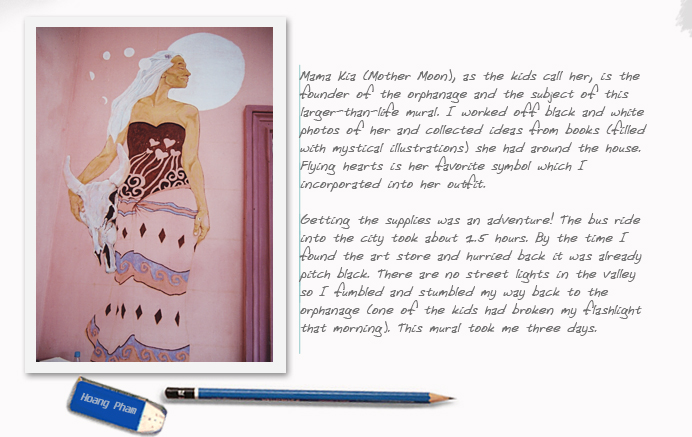 Mama Kia (Mother Moon), as the kids call her, is the
founder of the orphanage and the subject of this
larger-than-life mural. I worked off black and white
photos of her and collected ideas from books (filled
with mystical illustrations) she had around the house.
Flying hearts is her favorite symbol which I
incorporated into her outfit.
Getting the supplies was an adventure! The bus ride
into the city took about 1.5 hours. By the time I
found the art store and hurried back it was already
pitch black. There are no street lights in the valley
so I fumbled and stumbled my way back to the
orphanage (one of the kids had broken my flashlight
that morning). This mural took me three days.
Hoang Pham